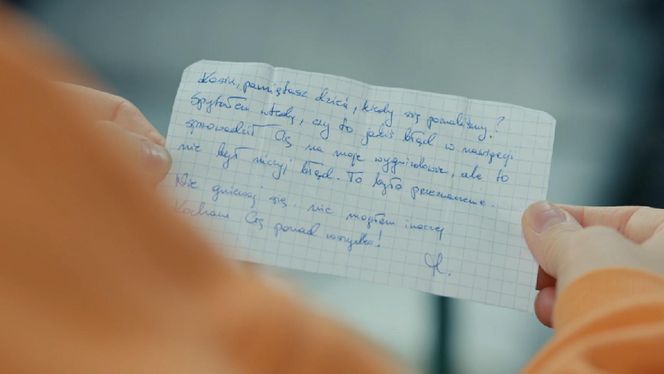 Kasiu, pamiętasz dzień, kiedy się poznaliśmy?
Spytałem wtedy, czy to jakiś błąd w nawigacji
sprowadził Cię na moje wygwizdowie, ale to
nie był niczyj błąd. To było przeznaczenie.
Nie gniewaj się.. nie mogłem inaczej
Kocham Cię ponad wszystko!